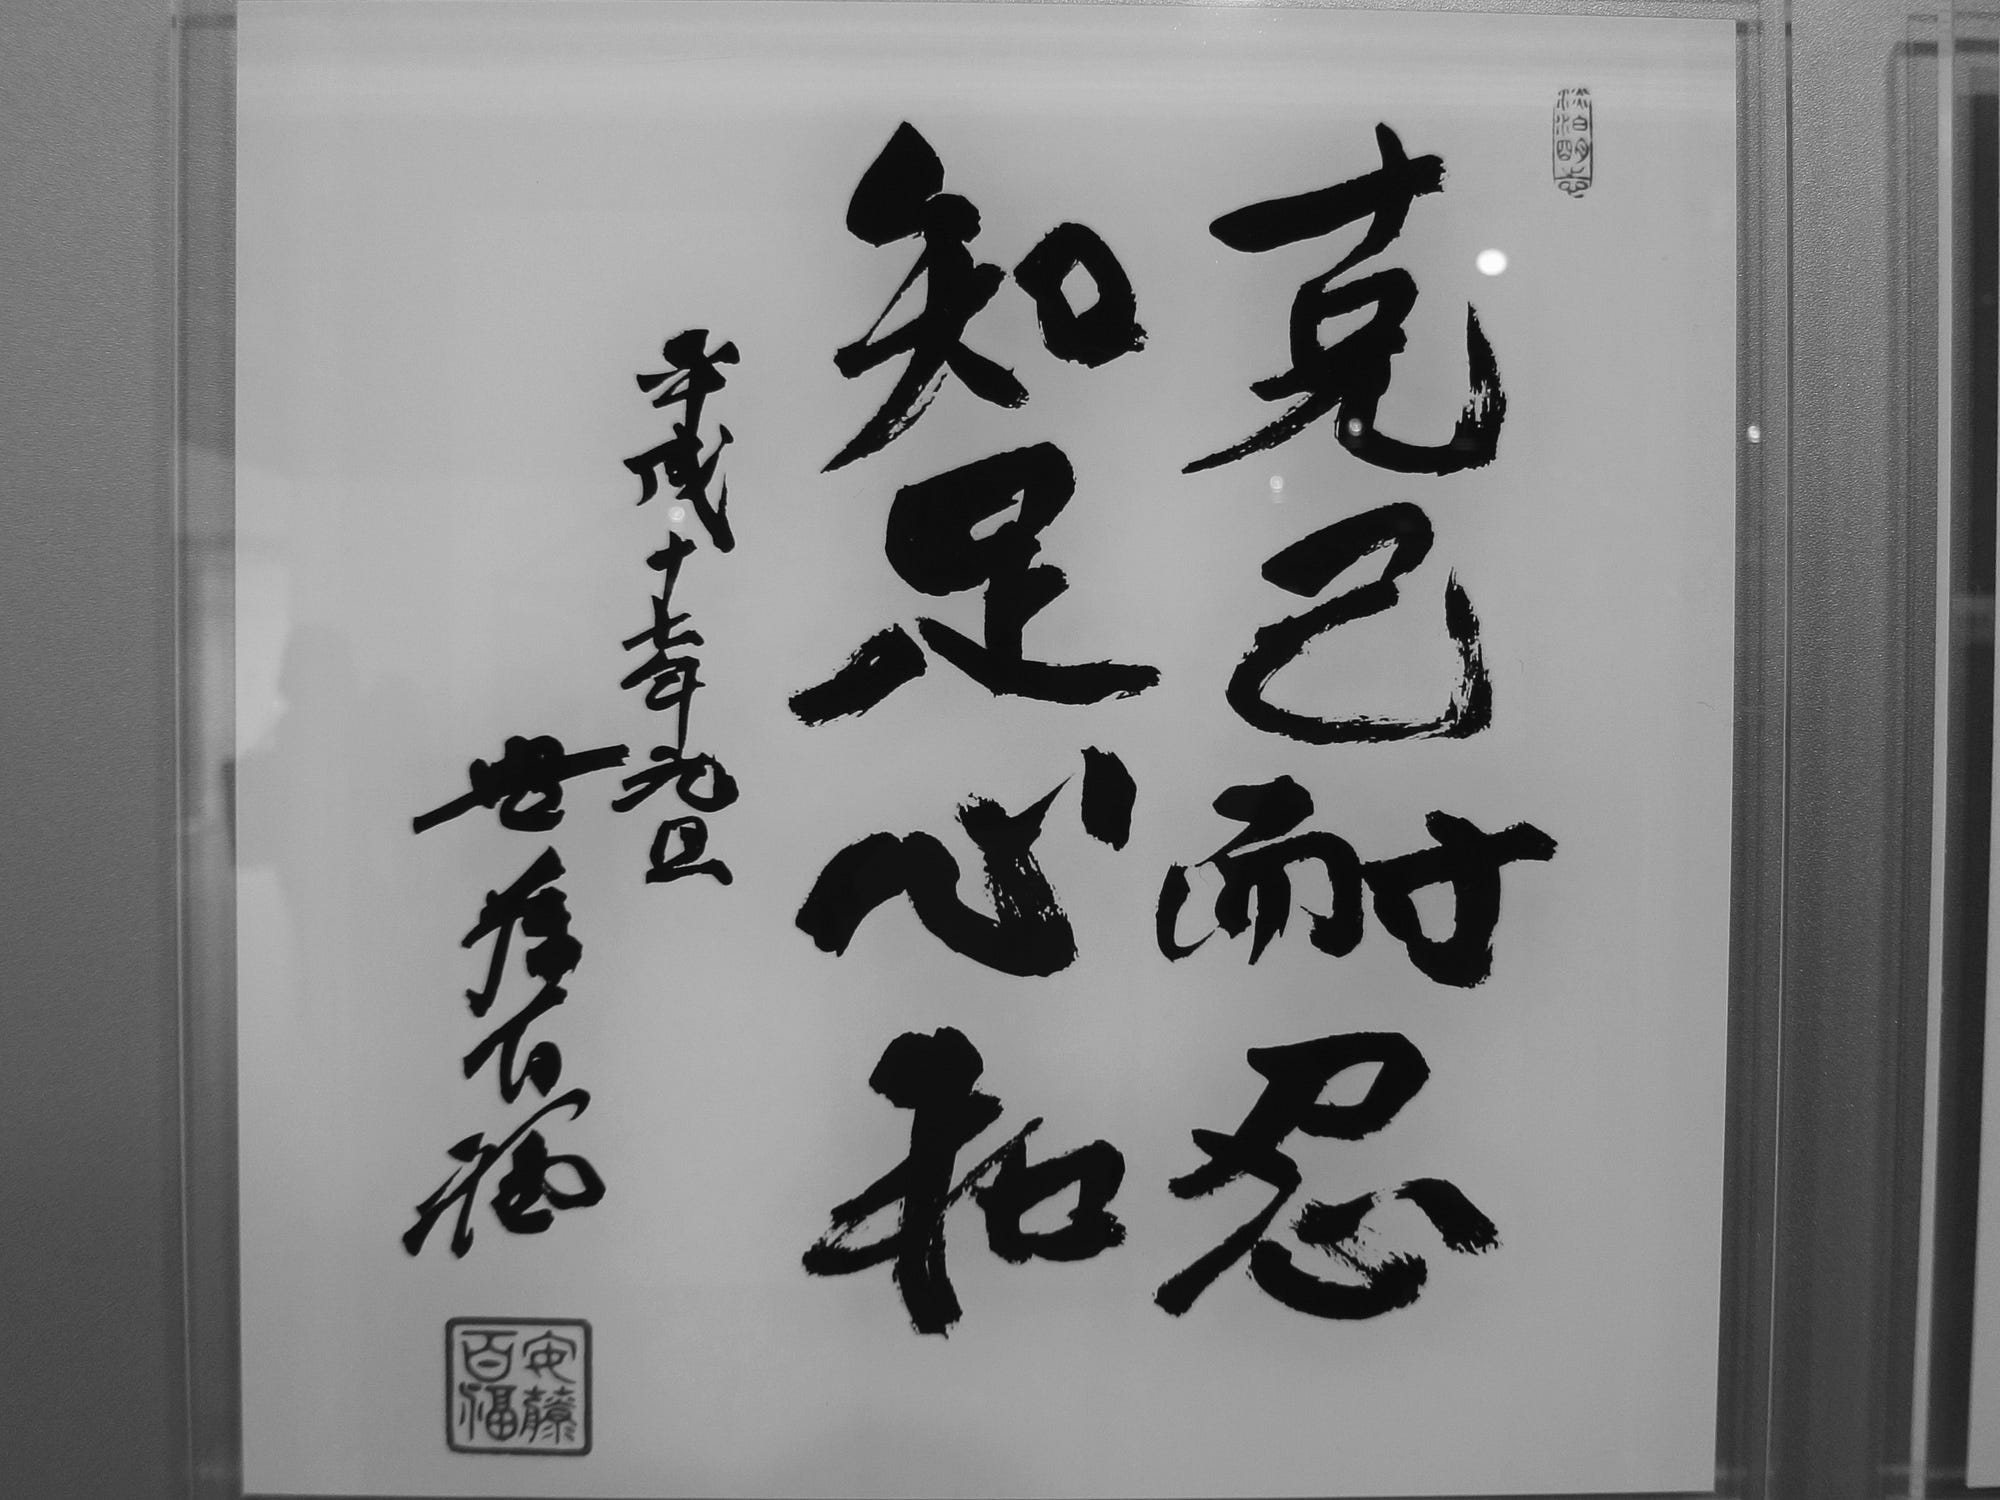 克己耐忍
知足心和
平成十七年元旦
安藤百福
安藤
百福